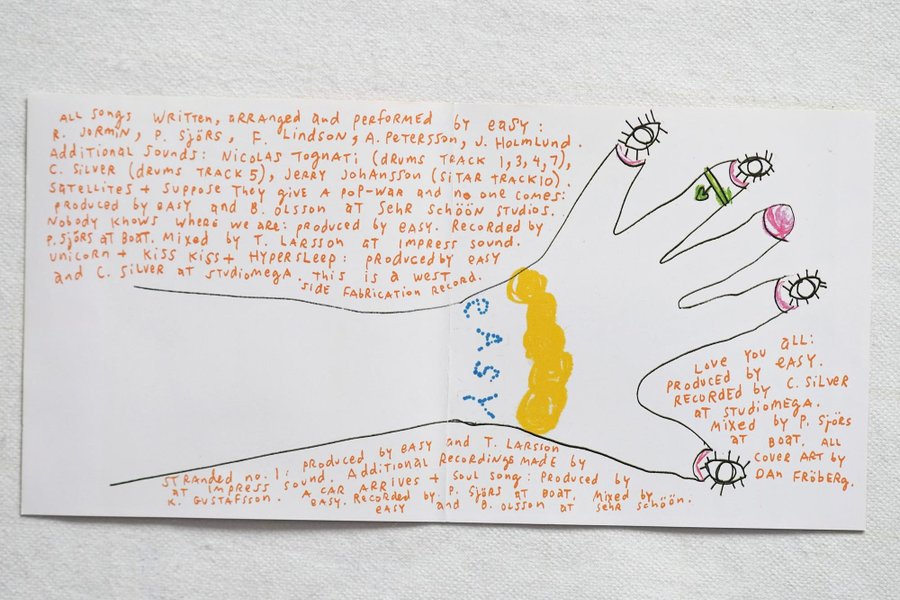 ALL SONGS WRITTEN, ARRANGED and PERFORMED by EASY:
R. JORMIN, P. SJÖRS, F. LINDSON, A. PETERSSON, J. HOLMLUND.
Additional SOUNDS: NICOLAS TOGNATI (DRUMS TRACK 1, 3, 4, 7),
C. SILVER (DRUMS TRACK 5), JERRY JOHANSSON (SITAR TRACK 10).
SATELLITES + SUPPOSE THEY GIVE A POP-WAR and NO ONE COMES:
PRODUCED BY EASY and B. OLSSON AT SEHR SCHÖÖN STUDIOS.
NOBODY KNOWS WHERE WE ARE: PRODUCED BY EASY. RECORDED BY
P. SJÖRS AT BOAT. MIXED BY T. LARSSON AT IMPRESS SOUND.
UNICORN + KISS KISS + HYPERSLEEP: PRODUCED BY EASY
and C. SILVER AT STUDIOMEGA. THIS IS A WEST
SIDE FABRICATION RECORD.
EASY
LOVE YOU ALL:
PRODUCED BY EASY.
RECORDED BY C. SILVER
AT STUDIOMEGA.
MIXED BY P. SJÖRS
AT BOAT. ALL
COVER ART BY
DAN FRÖBERG.
STRANDED NO. 1: PRODUCED BY EASY and T. LARSSON
AT IMPRESS SOUND. ADDITIONAL RECORDINGS MADE BY
K. GUSTAFSSON. A CAR ARRIVES + SOUL SONG: PRODUCED BY
EASY. RECORDED BY P. SJÖRS AT BOAT. MIXED BY
EASY and B. OLSSON AT SEHR SCHÖÖN.